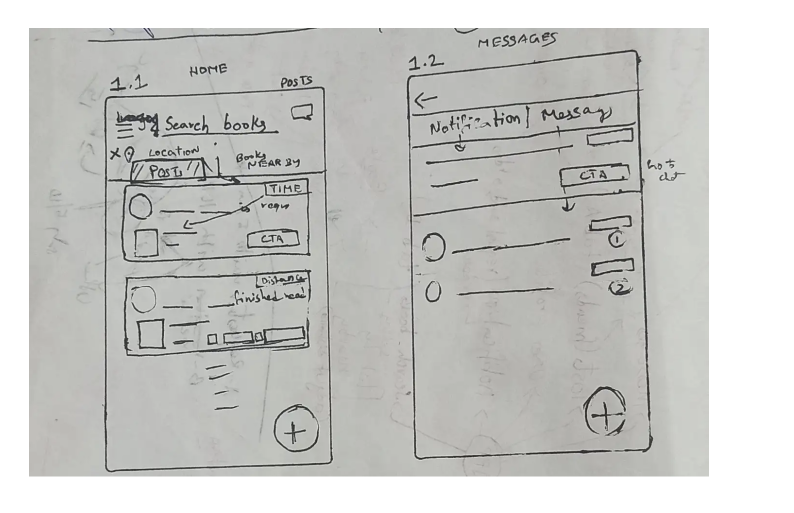 HOME
1.1
POSTS
Search books
Location
POSTS
Books
NEARBY
TIME
requ
CTA
Distance
finished read
+
MESSAGES
1.2
←
Notification | Message
CTA
1
2
+